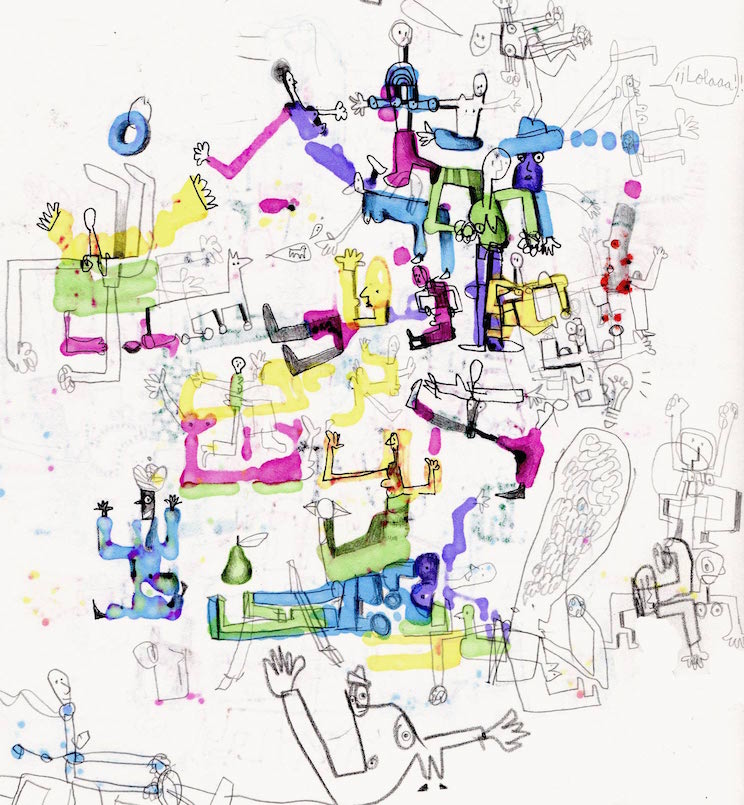 ¡¡Lolaaa!!